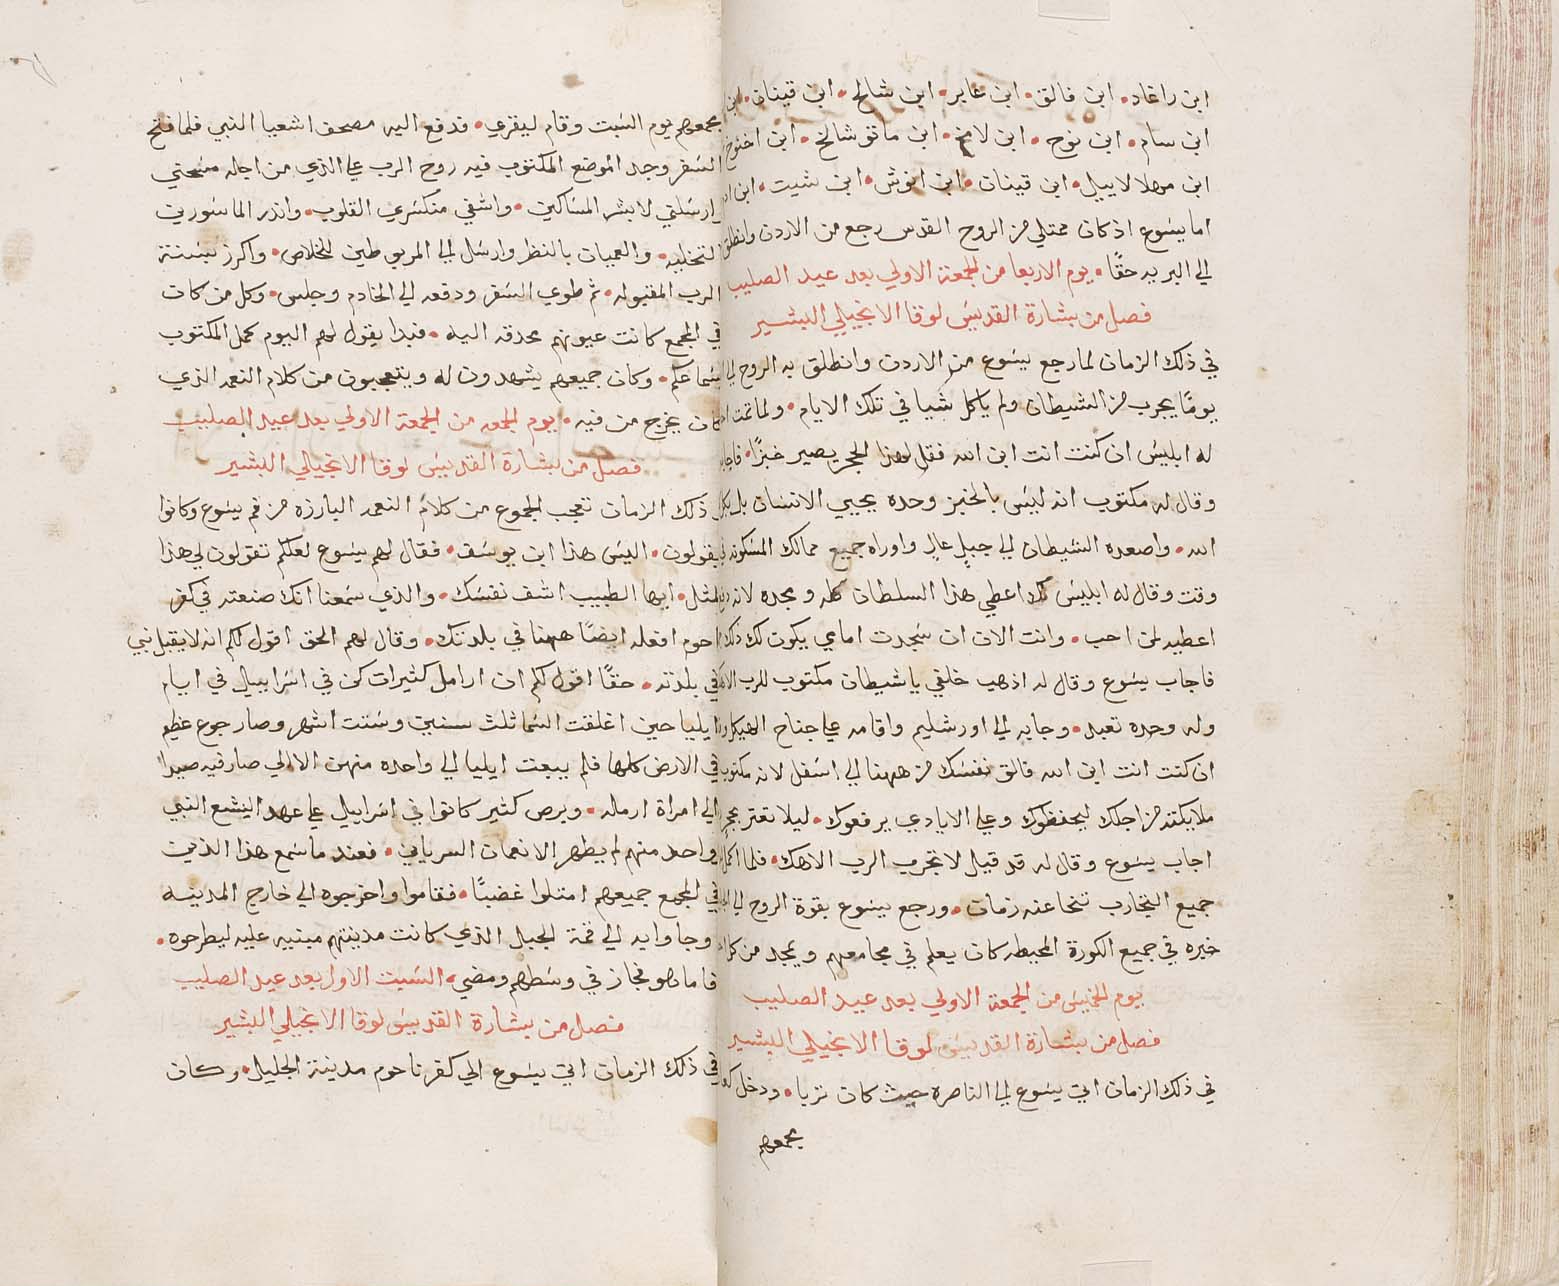 ابن راغاد. ابن فالق. ابن عابر. ابن شالخ. ابن قينان. ابن
ابن سام. ابن نوح. ابن لامخ. ابن ماتوشالخ. ابن اخنوخ
ابن مهلالاييل. ابن قينان. ابن انوش. ابن شيت. ابن
اما يسوع اذ كان ممتلي من الروح القدس رجع من الاردن وانطلق
الي البريه حقًا. يوم الاربعا من الجمعة الاولي بعد عيد الصليب
فصل من بشارة القديس لوقا الانجيلي البشير
في ذلك الزمان لما رجع يسوع من الاردن وانطلق به الروح الي
يومًا يجرب من الشيطان ولم ياكل شيا في تلك الايام. ولما تمت
له ابليس ان كنت انت ابن الله فقل لهذا الحجر يصير خبزًا. فاجاب
وقال له مكتوب انه ليس بالخبز وحده يحيي الانسان بل بكل
الله. واصعده الشيطان الي جبل عالي واوراه جميع ممالك المسكونه
وقت وقال له ابليس لك اعطي هذا السلطان كله ومجده لانه
اعطيه لمن احب. وانت الان ان سجدت امامي يكون لك ذلك
فاجاب يسوع وقال له اذهب خلفي يا شيطان مكتوب للرب الاهك
وله وحده تعبد. وجا به الي اورشليم واقامه علي جناح الهيكل
ان كنت انت ابن الله فالق نفسك من ههنا الي اسفل لانه مكتوب
ملايكته من اجلك ليحفظوك وعلي الايادي يرفعوك. ليلا تعتر بحجر
اجاب يسوع وقال له قد قيل لا تجرب الرب الاهك. فلما اكمل
جميع التجارب تنحا عنه زمان. ورجع يسوع بقوة الروح الي
خبره في جميع الكورة المحيطه كان يعلم في مجامعهم ويمجد من كل
يوم الخميس من الجمعة الاولي بعد عيد الصليب
فصل من بشارة القديس لوقا الانجيلي البشير
في ذلك الزمان اتي يسوع الي الناصرة حيث كان تربا. ودخل
بجمعهم
بجمعهم يوم السبت وقام ليقري. فدفع اليه مصحف اشعيا النبي فلما فتح
السفر وجد الموضع المكتوب فيه روح الرب علي الذي من اجله مسحني
وارسلني لابشر المساكين. واشفي منكسري القلوب. وانذر الماسورين
بالتخليه. والعميان بالنظر وارسل الي المربوطين للخلاص. واكرز بسنة
الرب المقبوله. ثم طوي السفر ودفعه الي الخادم وجلس. وكل من كان
في المجمع كانت عيونهم محدقه اليه. فبدا يقول لهم اليوم كمل المكتوب
بسماعكم. وكان جميعهم يشهدون له ويتعجبون من كلام النعمه الذي
كان يخرج من فيه. يوم الجمعه من الجمعة الاولي بعد عيد الصليب
فصل من بشارة القديس لوقا الانجيلي البشير
ذلك الزمان تعجب الجموع من كلام النعمه البارزه من فم يسوع وكانوا
يقولون. اليس هذا ابن يوسف. فقال لهم يسوع لعلكم تقولون لي هذا
المثل. ايها الطبيب اشف نفسك. والذي سمعنا انك صنعته في كفر
ناحوم افعله ايضًا ههنا في بلدتك. وقال لهم الحق اقول لكم انه لا يقبل نبي
في بلدته. حقًا اقول لكم ان ارامل كثيرات كن في اسراييل في ايام
ايليا حين اغلقت السما ثلث سنين وستت اشهر وصار جوع عظيم
في الارض كلها فلم يبعت ايليا الي واحده منهن الا الي صارفيه صيدا
الي امراة ارمله. وبرص كثير كانوا في اسراييل علي عهد اليشع النبي
وواحد منهم لم يطهر الا نعمان السرياني. فعند ما سمع هذا الذين
في المجمع جميعهم امتلوا غضبًا. فقاموا واخرجوه الي خارج المدينه
وجاوا به الي قمة الجبل الذي كانت مدينتهم مبنيه عليه ليطرحوه.
فاما هو فجاز في وسطهم ومضي. السبت الاول بعد عيد الصليب
فصل من بشارة القديس لوقا الانجيلي البشير
في ذلك الزمان اتي يسوع الي كفرناحوم مدينة الجليل. وكان